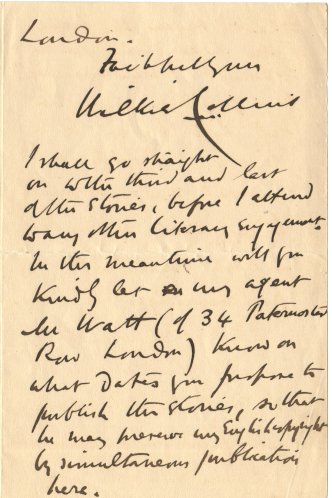 London.
Faithfully yours
Wilkie Collins
I shall go straight
on with the third and last
of the Stories, before I attend
to any other Literary Engagement.
In the meantime will you
Kindly let my agent
Mr Watt (of 34 Paternoster
Row London) know on
what Dates you propose to
publish the Stories, so that
he may preserve my English copyright
by simultaneous publication
here.